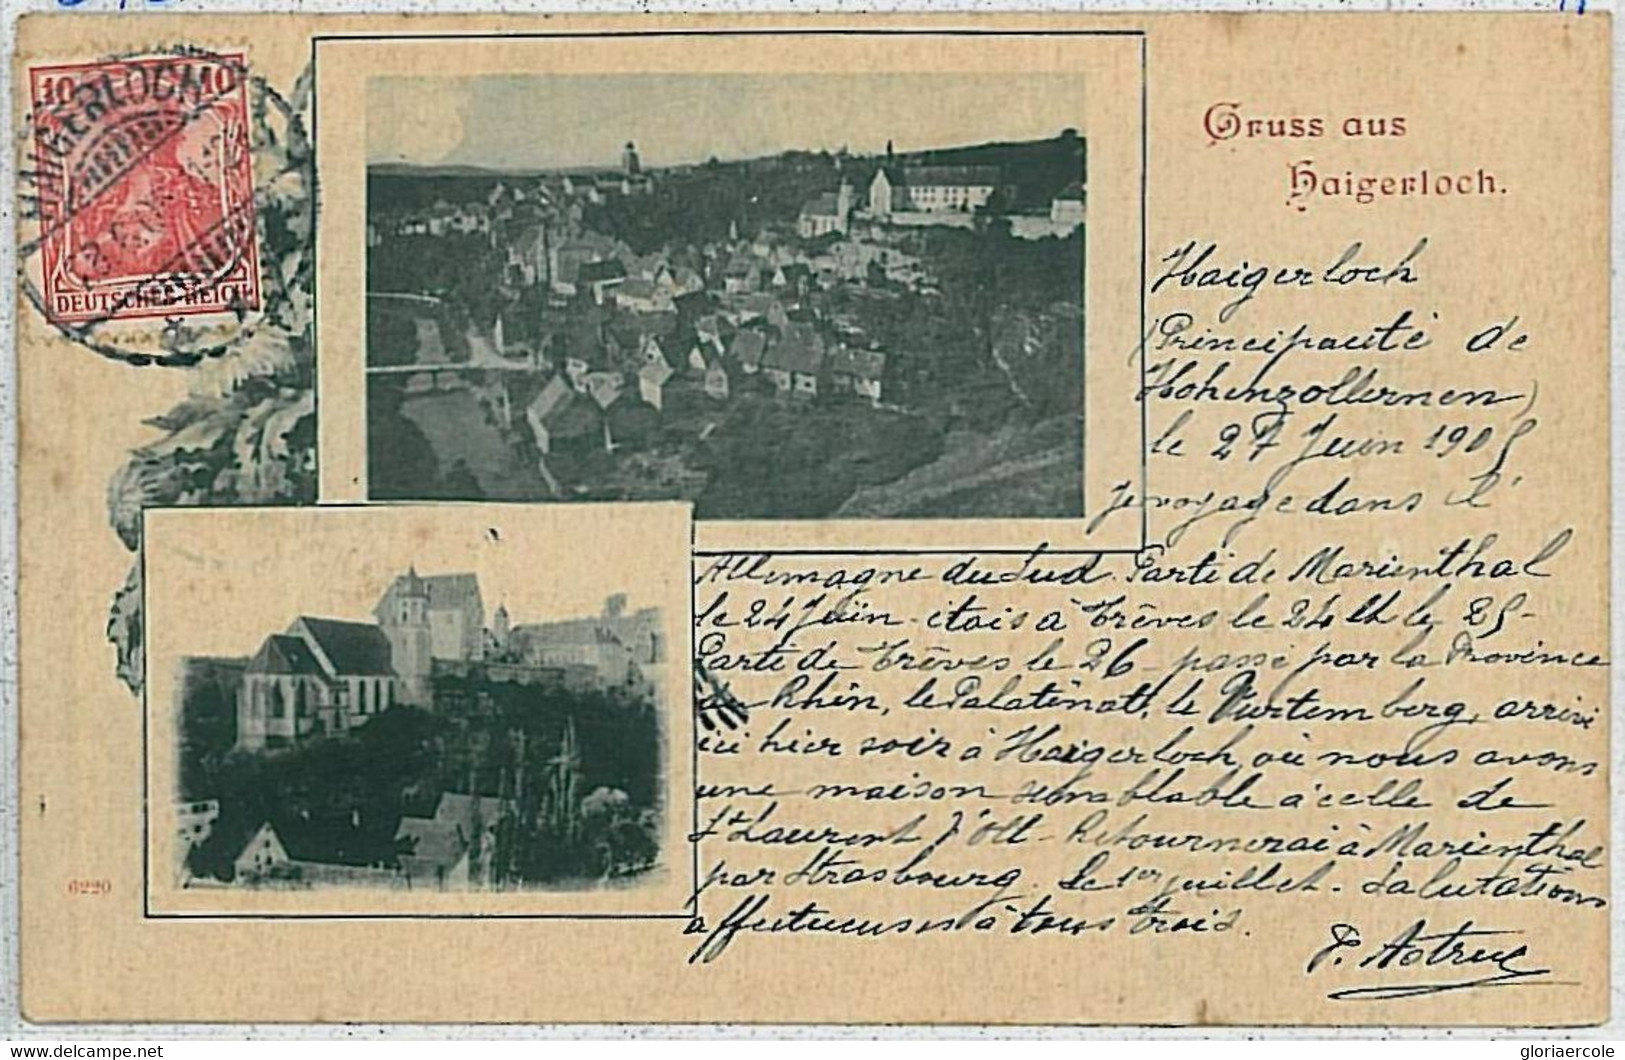 10 10
HAIGERLOCH
DEUTSCHES REICH
Gruss aus
Haigerloch.
Haigerloch
(Principauté de
Hohenzollernen)
le 27 Juin 1905
Je voyage dans l'
Allemagne du Sud. Parti de Marienthal
le 24 Juin - étais à Trêves le 24 et le 25 -
Parti de Trêves le 26 - passé par la Province
du Rhin, le Palatinat, le Wurtemberg, arrivé
ici hier soir à Haigerloch, où nous avons
une maison semblable à celle de
St Laurent d'Olt - Retournerai à Marienthal
par Strasbourg. Le 1er juillet - Salutations
affectueuses à tous trois.
P. Astruc
6220
delcampe.net
gloriaercole